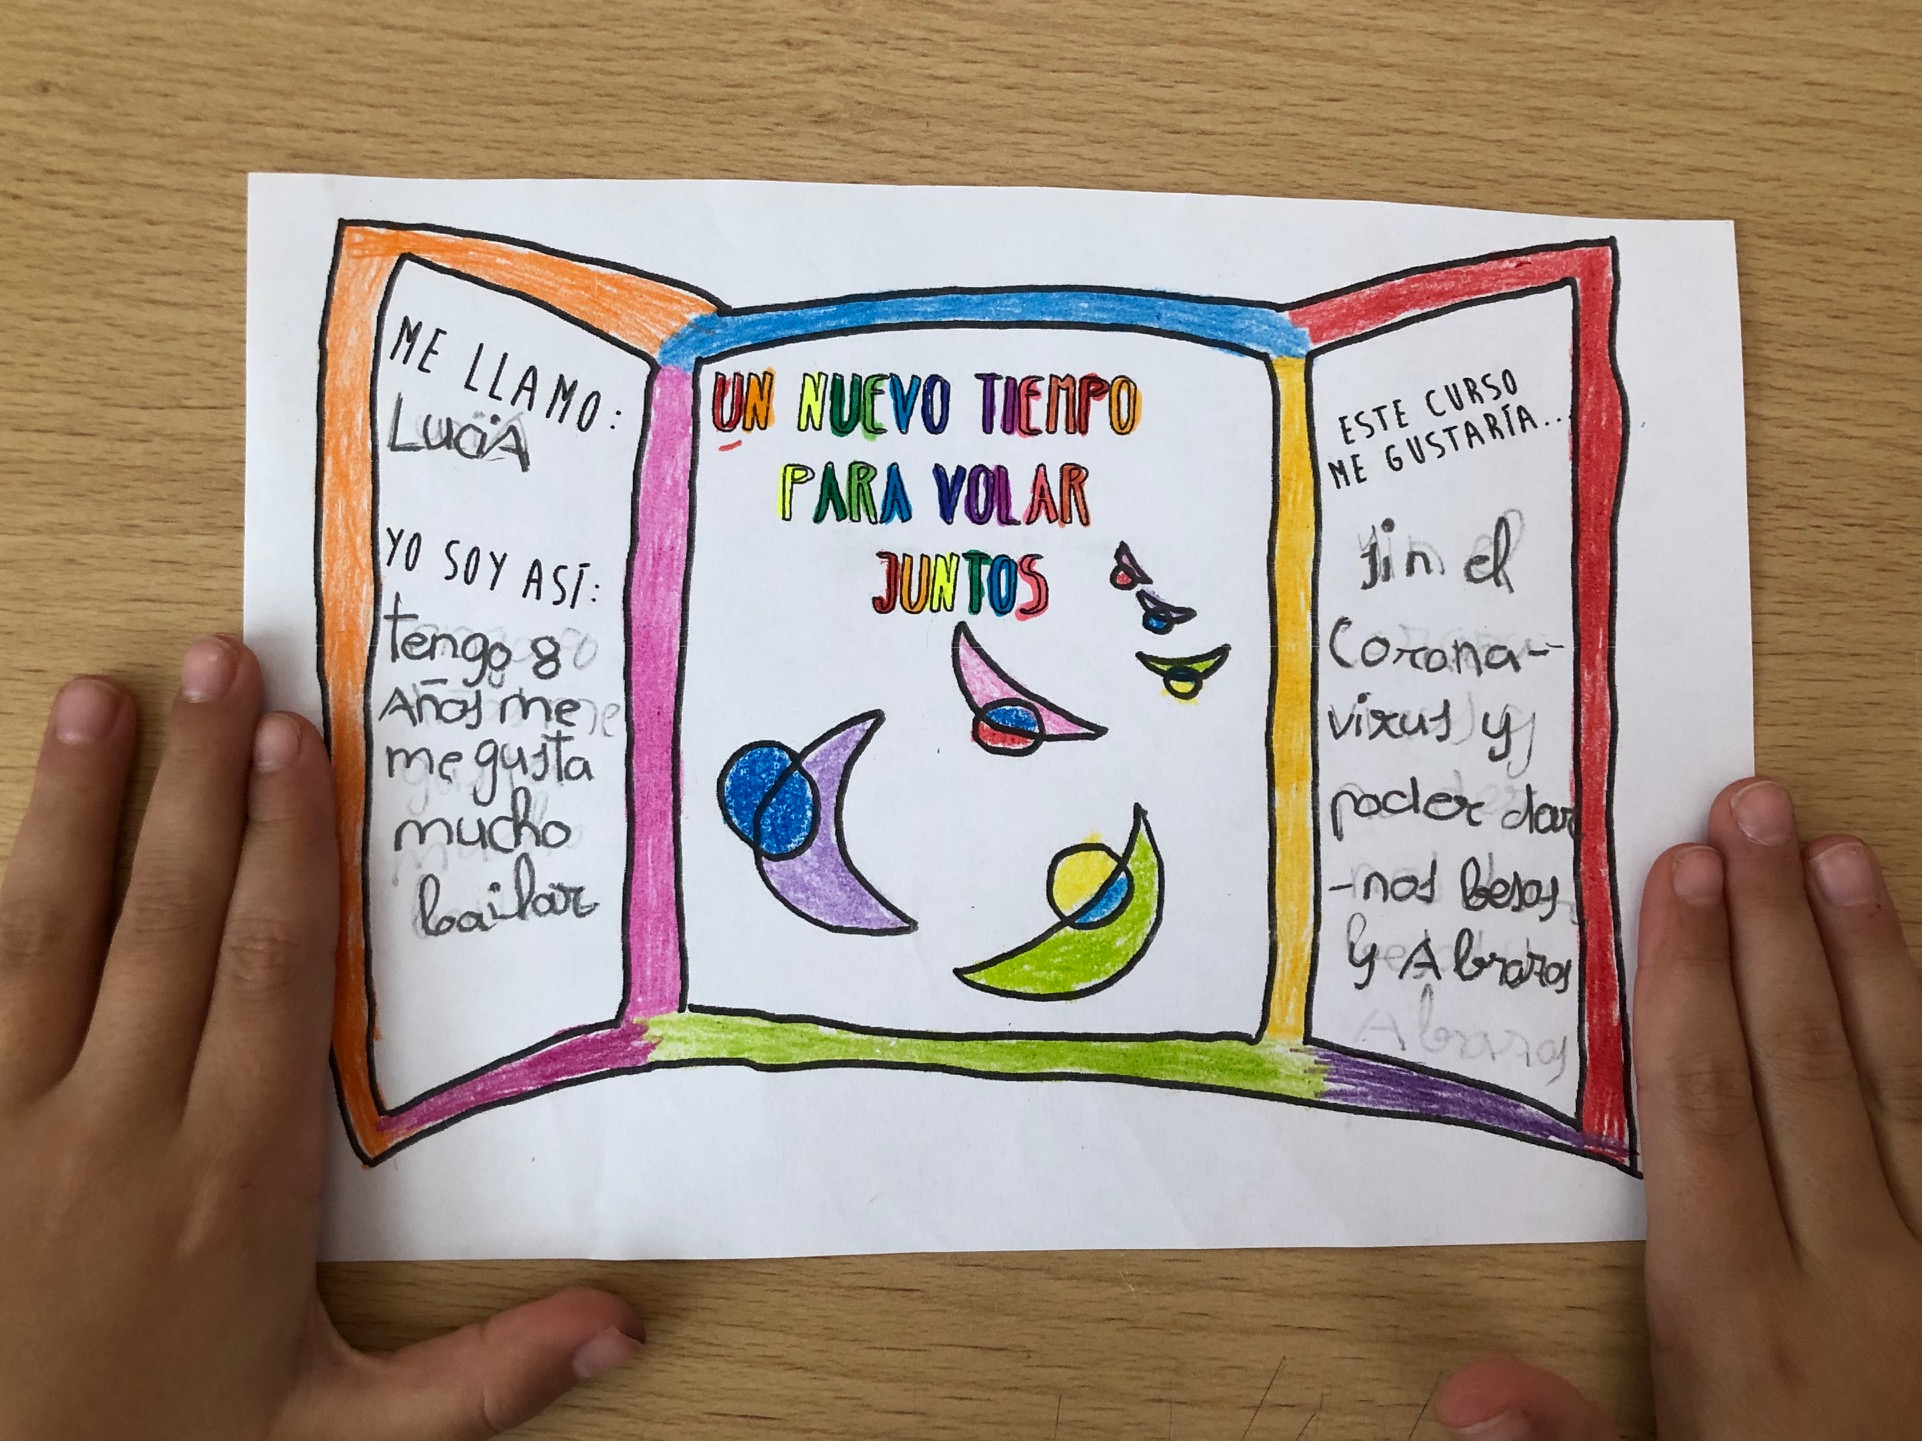 ME LLAMO:
LuciA
YO SOY ASÍ:
tengo 8
Años me
me gusta
mucho
bailar
UN NUEVO TIEMPO
PARA VOLAR
JUNTOS
ESTE CURSO
ME GUSTARÍA...
sin el
Corona-
virus y
poder dar
-nos besos
y Abrazos